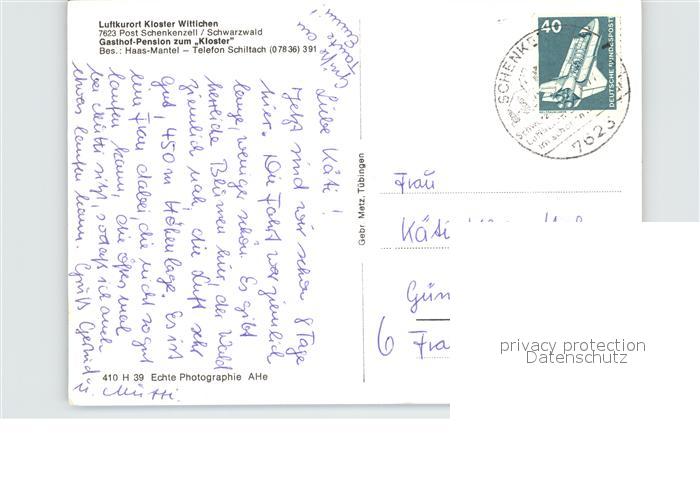 Luftkurort Kloster Wittichen
7623 Post Schenkenzell / Schwarzwald
Gasthof-Pension zum „Kloster"
Bes.: Haas-Mantel – Telefon Schiltach (07836) 391
Liebe Käti!
Jetzt sind wir schon 8 Tage
hier. Die Fahrt war ziemlich
lange, weniger schön. Es gibt
herrliche Blumen hier, der Wald
ziemlich nah, die Luft sehr
gut, 450 m Höhenlage. Es ist
eine Frau dabei, die nicht so gut
laufen kann, die öfters mal
bei Mutti sitzt, sodaß ich auch
etwas laufen kann. Gruß Gerind u.
Mutti.
Grüße an
410 H 39 Echte Photographie AHe
Gebr. Metz, Tübingen
40
DEUTSCHE BUNDESPOST
SCHENKE
7623
Frau
Käti
Gün
6 Fra
privacy protection
Datenschutz